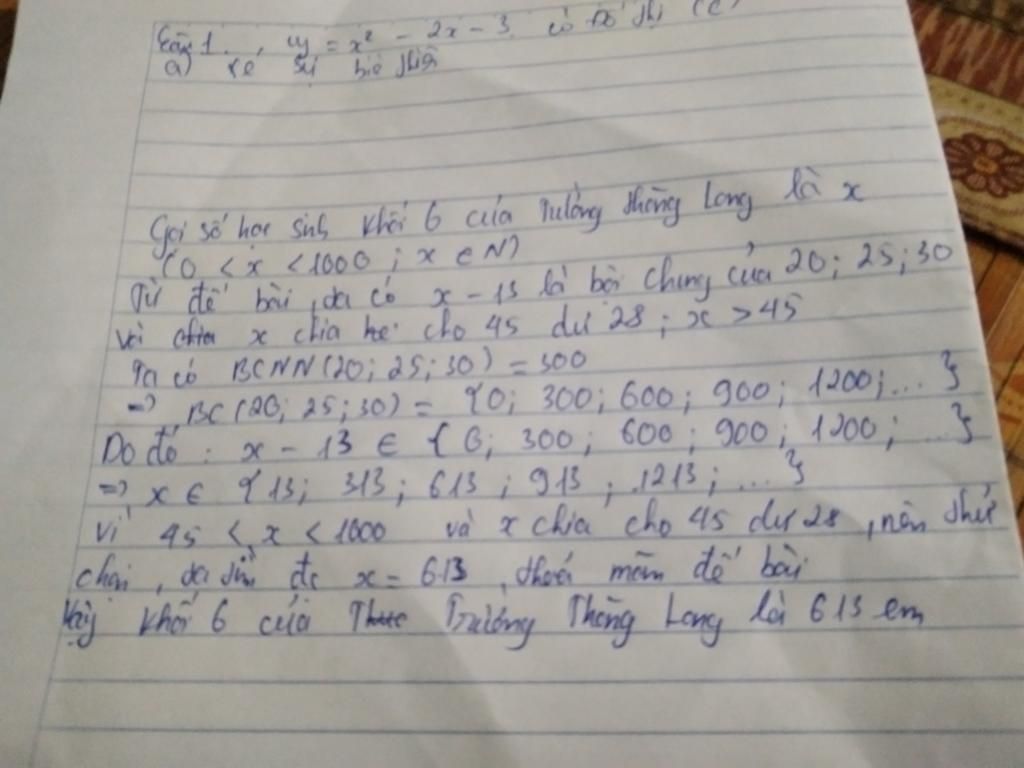 Câu 1. , y = x² - 2x - 3 có đồ thị (C)
a) sự biê thiê
Gọi số học sinh khối 6 của trường thăng Long là x
(0 < x < 1000 ; x ∈ N)
Từ đề bài, ta có x - 13 là bội chung của 20; 25; 30
và chia x chia he cho 45 dư 28 ; x > 45
Ta có BCNN(20; 25; 30) = 300
=> BC(20; 25; 30) = {0; 300; 600; 900; 1200; ... }
Do đó : x - 13 ∈ {0; 300; 600; 900; 1200; ...}
=> x ∈ {13; 313; 613; 913; 1213; ... }
Vì 45 < x < 1000 và x chia cho 45 dư 28, nên thử
chọn, ta tìm đc x = 613, thoả mãn đề bài
Vậy khối 6 của Trường Thăng Long là 613 em